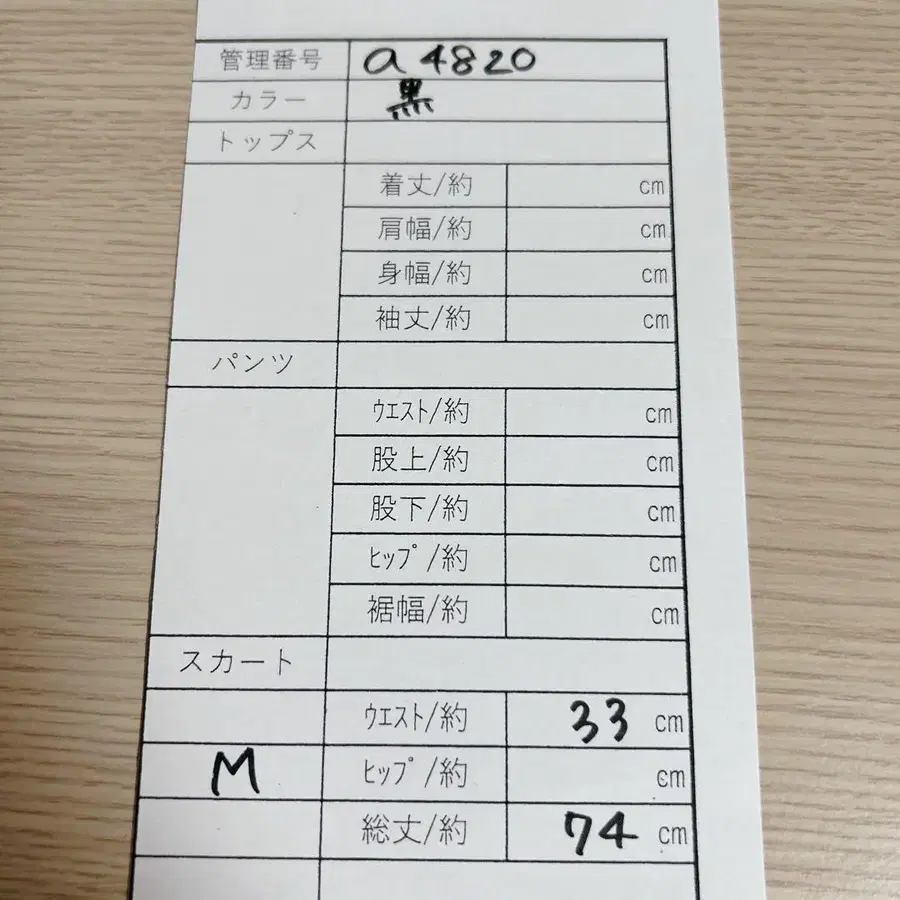 管理番号 a4820
カラー 黒
トップス
着丈/約 cm
肩幅/約 cm
身幅/約 cm
袖丈/約 cm
パンツ
ｳｴｽﾄ/約 cm
股上/約 cm
股下/約 cm
ﾋｯﾌﾟ/約 cm
裾幅/約 cm
スカート
ｳｴｽﾄ/約 33 cm
M ﾋｯﾌﾟ/約 cm
総丈/約 74 cm